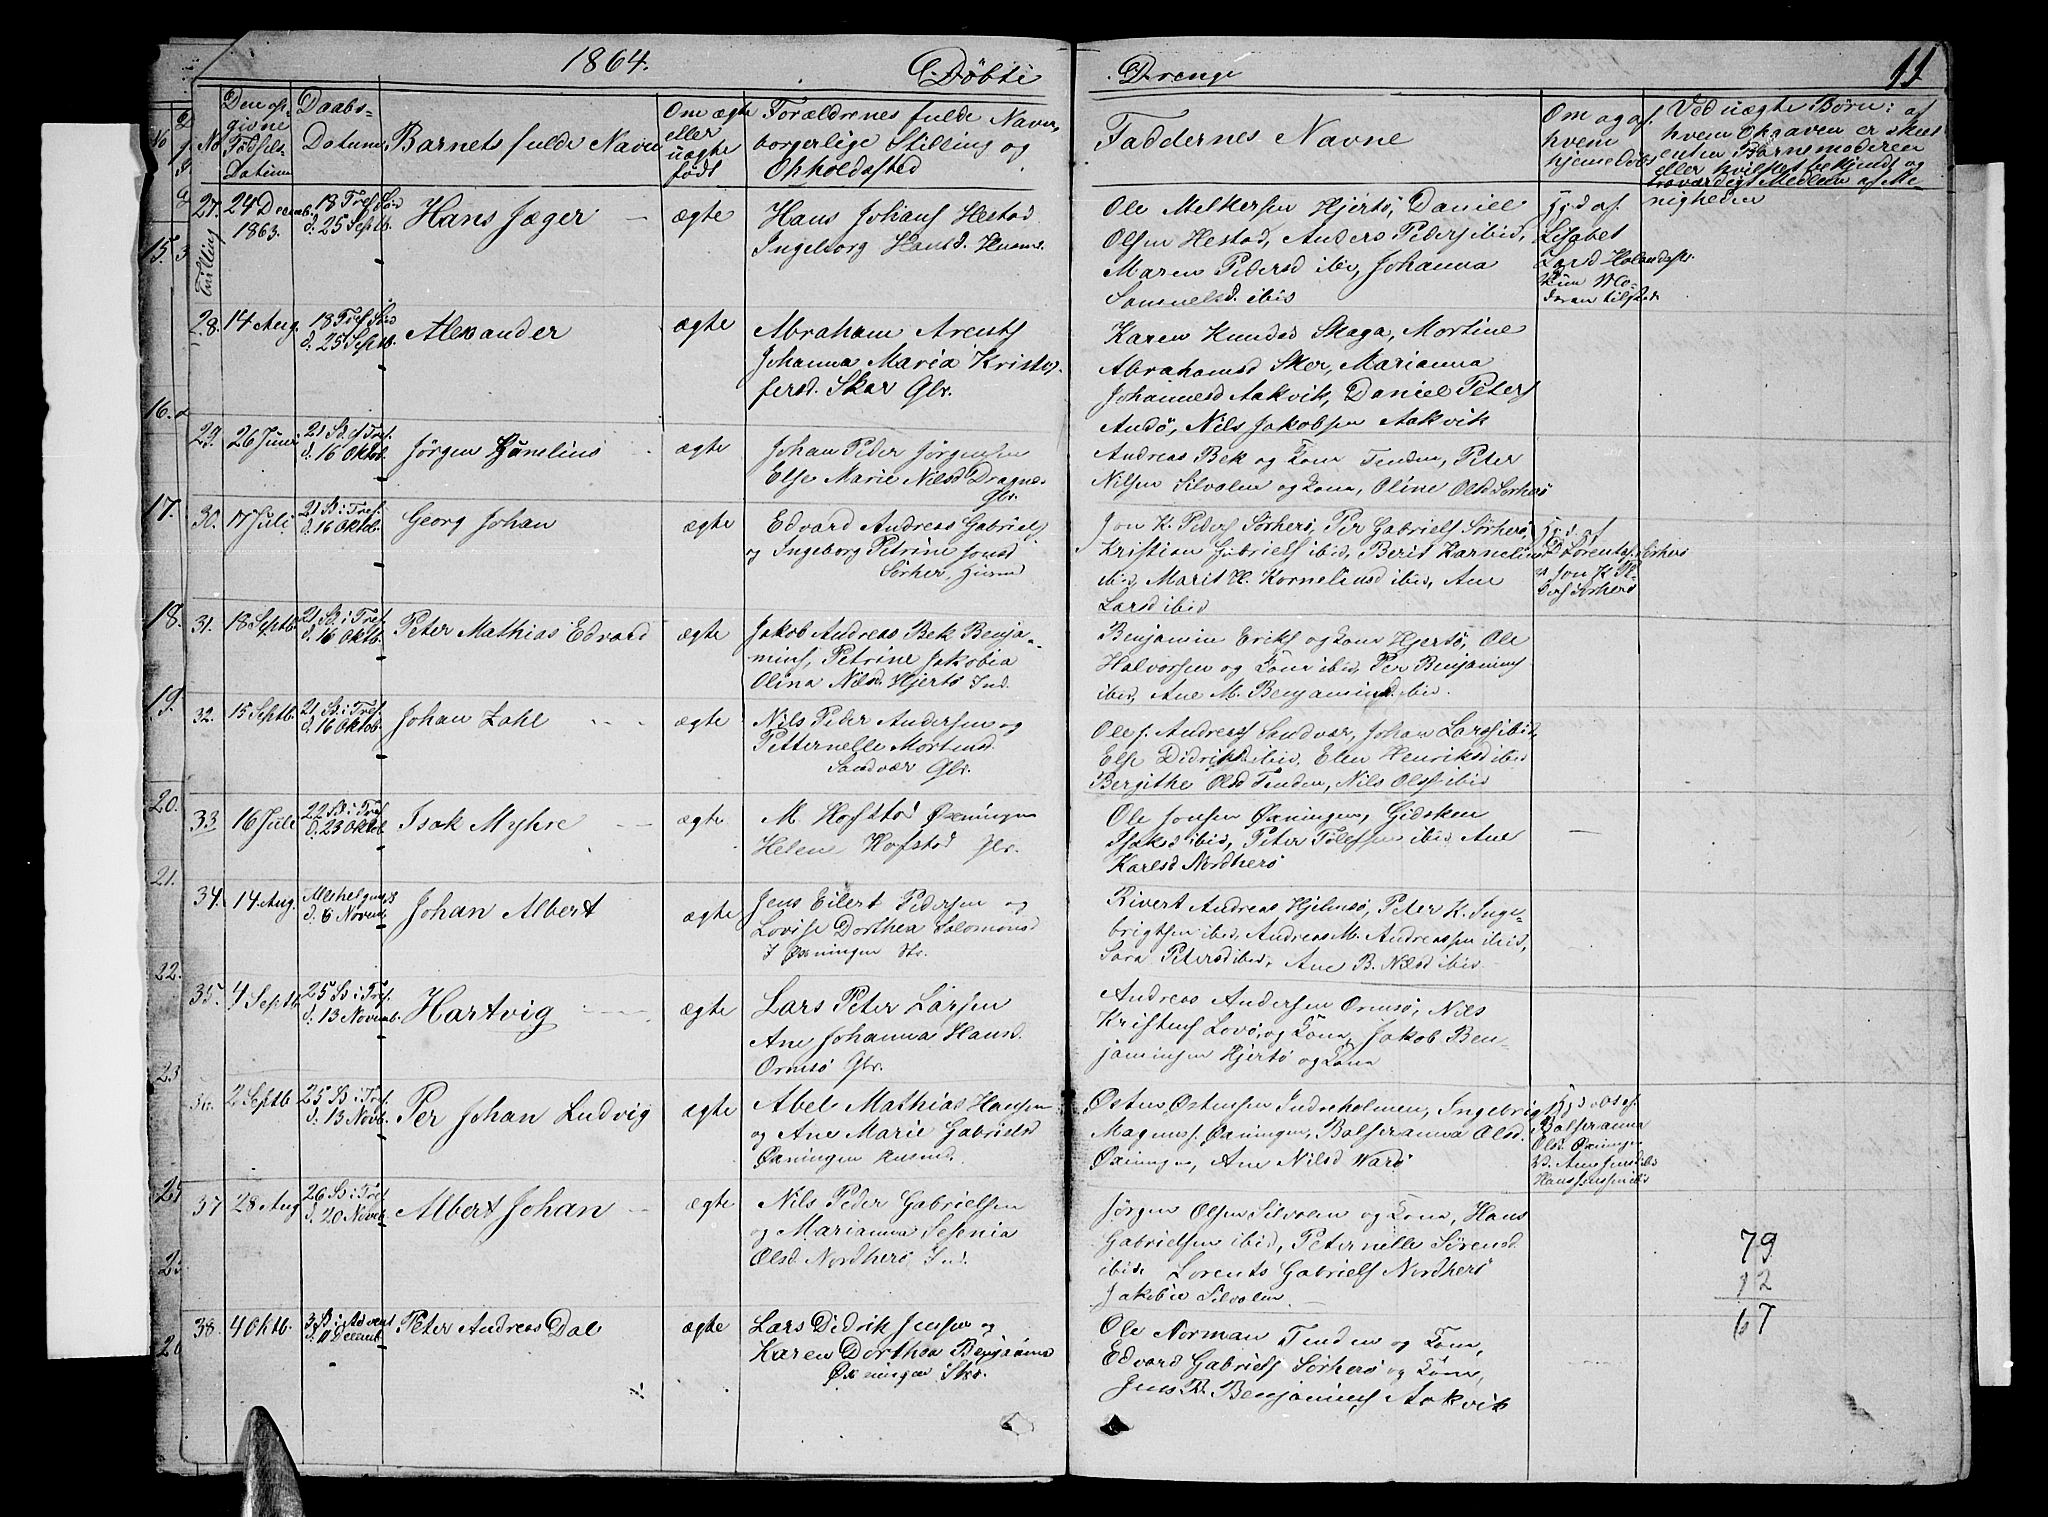 1864.
Döbte
Drenge
11
No
Den op-
givne
Födsels-
Datum
Daabs-
Datum
Barnets fulde Navn
Om ægte
eller
uægte
født
Forældrenes fulde Navn,
borgerlige Stilling og
Opholdssted
Faddernes Navne
Om og af
hvem
hjemmedøbt
Ved uægte Børn: af
hvem Opgaven er skeet
enten Barnemoderen
eller hvilket bekjendt og
troværdigt Medlem af Me-
nigheden
27.
Tvilling
24 Decemb.
1863.
18 Tref Sön
d. 25 Septb.
Hans Jæger
ægte
Hans Johans Hestad
Ingeborg Hansd. Husm.
Ole Melkersen Hjertö, Daniel
Olsen Hestad, Anders Peders ibid,
Maren Pedersd ibid, Johanna
Samuelsd. ibid
Hjd af
Lisabet
Larsd
28.
14 Aug.
18 Tref Sön
d. 25 Septb.
Alexander
ægte
Abraham Arents
Johanna Maria Kristof-
fersd. Skar Gbr.
Karen Knudsd Skaga, Mortine
Abrahamsd Sker, Marianna
Johannesd Aakvik, Daniel Peters
Andö, Nils Jakobsen Aakvik
29.
26 Juni
21 S. e Tref.
d. 16 Oktob.
Jörgen
ægte
Johan Peder Jörgensen
Else Marie Nilsd Dragnes
Gbr.
Andreas Bek og Kona Tenden, Peter
Nilsen Silvalen og Kona, Oline Olsd Sörherö
30.
17 Juli
21 S. i Tref.
d. 16 Oktob.
Georg Johan
ægte
Edvard Andreas Gabriels
og Ingeborg Petrine Jonsd
Sörher, Husmd
Jon K. Peders Sörherö, Per Gabriels Sörherö,
Kristian Gabriels ibid, Berit Karnelius
ibid, Marit H. Korneliusd ibid, Ane
Larsd ibid
Hjd af
Lorents Sörherö
31.
18 Septb.
21 S. i Tref.
d. 16 Oktb.
Peter Mathias Edvard
ægte
Jakob Andreas Bek Benja-
mins, Petrine Jakobia
Olina Nilsd. Hjertö Ind.
Benjamin Eriks og Kona Hjertö, Ole
Halvorsen og Kona ibid, Per Benjamins
ibid, Ane M. Benjaminsd. ibid.
32.
15 Septb.
21 S. i Tref.
d. 16 Oktob.
Johan Zahl
ægte
Nils Peder Andersen og
Petternelle Mortensd.
Sandvær Gbr.
Ole J. Andreass Sandvær, Johan Lars ibid,
Else Didriksd ibid, Elen Henriksd ibid
Bergithe Olsd Tenden, Nils Ols ibid
33
16 Juli
22 S. i Tref
d. 23 Oktob.
Isak Myhre
ægte
M. Hofstad Øxningen
Helene Hofstad Gbr.
Ole Jonsen Øxningen, Gidsken
Isaksd ibid, Peter Tollefsen ibid, Ane
Karlsd Nordherö
34.
14 Aug.
Allehelgensd
d. 6 Novemb.
Johan Albert
ægte
Jens Eilert Pedersen og
Lovise Dorthea Salomonsd
I Øxningen Str.
Sivert Andreas Hjelmsö, Peter K. Inge-
brigtsen ibid, Andreas M. Andreassen ibid,
Sara Petersd ibid, Ane B. Nilsd ibid
35.
4 Septb.
25 S. i Tref.
d. 13 Novemb.
Hartvig
ægte
Lars Peter Larsen
Ane Johanna Hansd.
Ormsö Gbr.
Andreas Andersen Ormsö, Nils
Kristens Lovö, og Kona, Jakob Ben-
jaminsen Hjertö og Kona
36.
2 Septb
25 S. i Tref.
d. 13 Novb.
Per Johan Ludvig
ægte
Abel Mathias Hansen
og Ane Marie Gabrielsd
Øxningen Husmd.
Östen Östensen Indreholmen, Ingebrig
Magnus. Øxningen, Balseranna Olsd.
Øxningen, Ane Nilsd Varö
Balseranna
Olsd. Øxningen
37
28 Aug
26 S. i Tref
d. 20 Noveb.
Albert Johan
ægte
Nils Peder Gabrielsen
og Marianna Sesenia
Olsd. Nordherö, Ind.
Jörgen Olsen Silvalen og Kona, Hans
Gabrielsen ibid, Peternelle Sörensd.
ibid. Lorents Gabriels Nordherö
Jakobie Silvalen
79
12
67
38.
4 Oktb.
3 S. i Advent
d. 11 Decemb.
Peter Andreas Dal
ægte
Lars Didrik Jensen og
Karen Dorthea Benjamins
Øxningen Str.
Ole Norman Tenden og Kona,
Edvard Gabriels Sörherö og Kona,
Jens R. Benjamins Aakvik
15.
16.
17.
18.
19.
20.
21.
22.
23